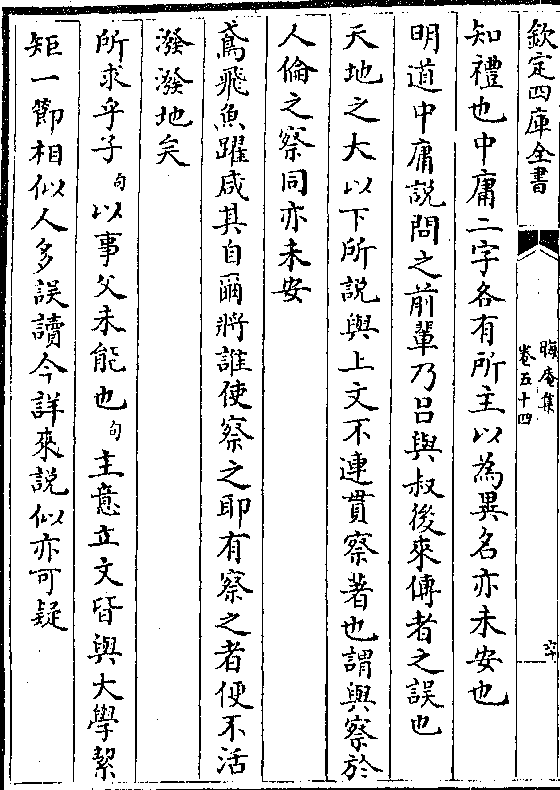 欽定四庫全書
晦庵集
卷五十四
知禮也中庸二字各有所主以為異名亦未安也
明道中庸說問之前輩乃吕與叔後來傳者之誤也
天地之大以下所說與上文不連貫察著也謂與察於
人倫之察同亦未安
鳶飛魚躍咸其自爾將誰使察之耶有察之者便不活
潑潑地矣
所求乎子句以事父未能也句主意立文皆與大學絜
矩一節相似人多誤讀今詳來說似亦可疑